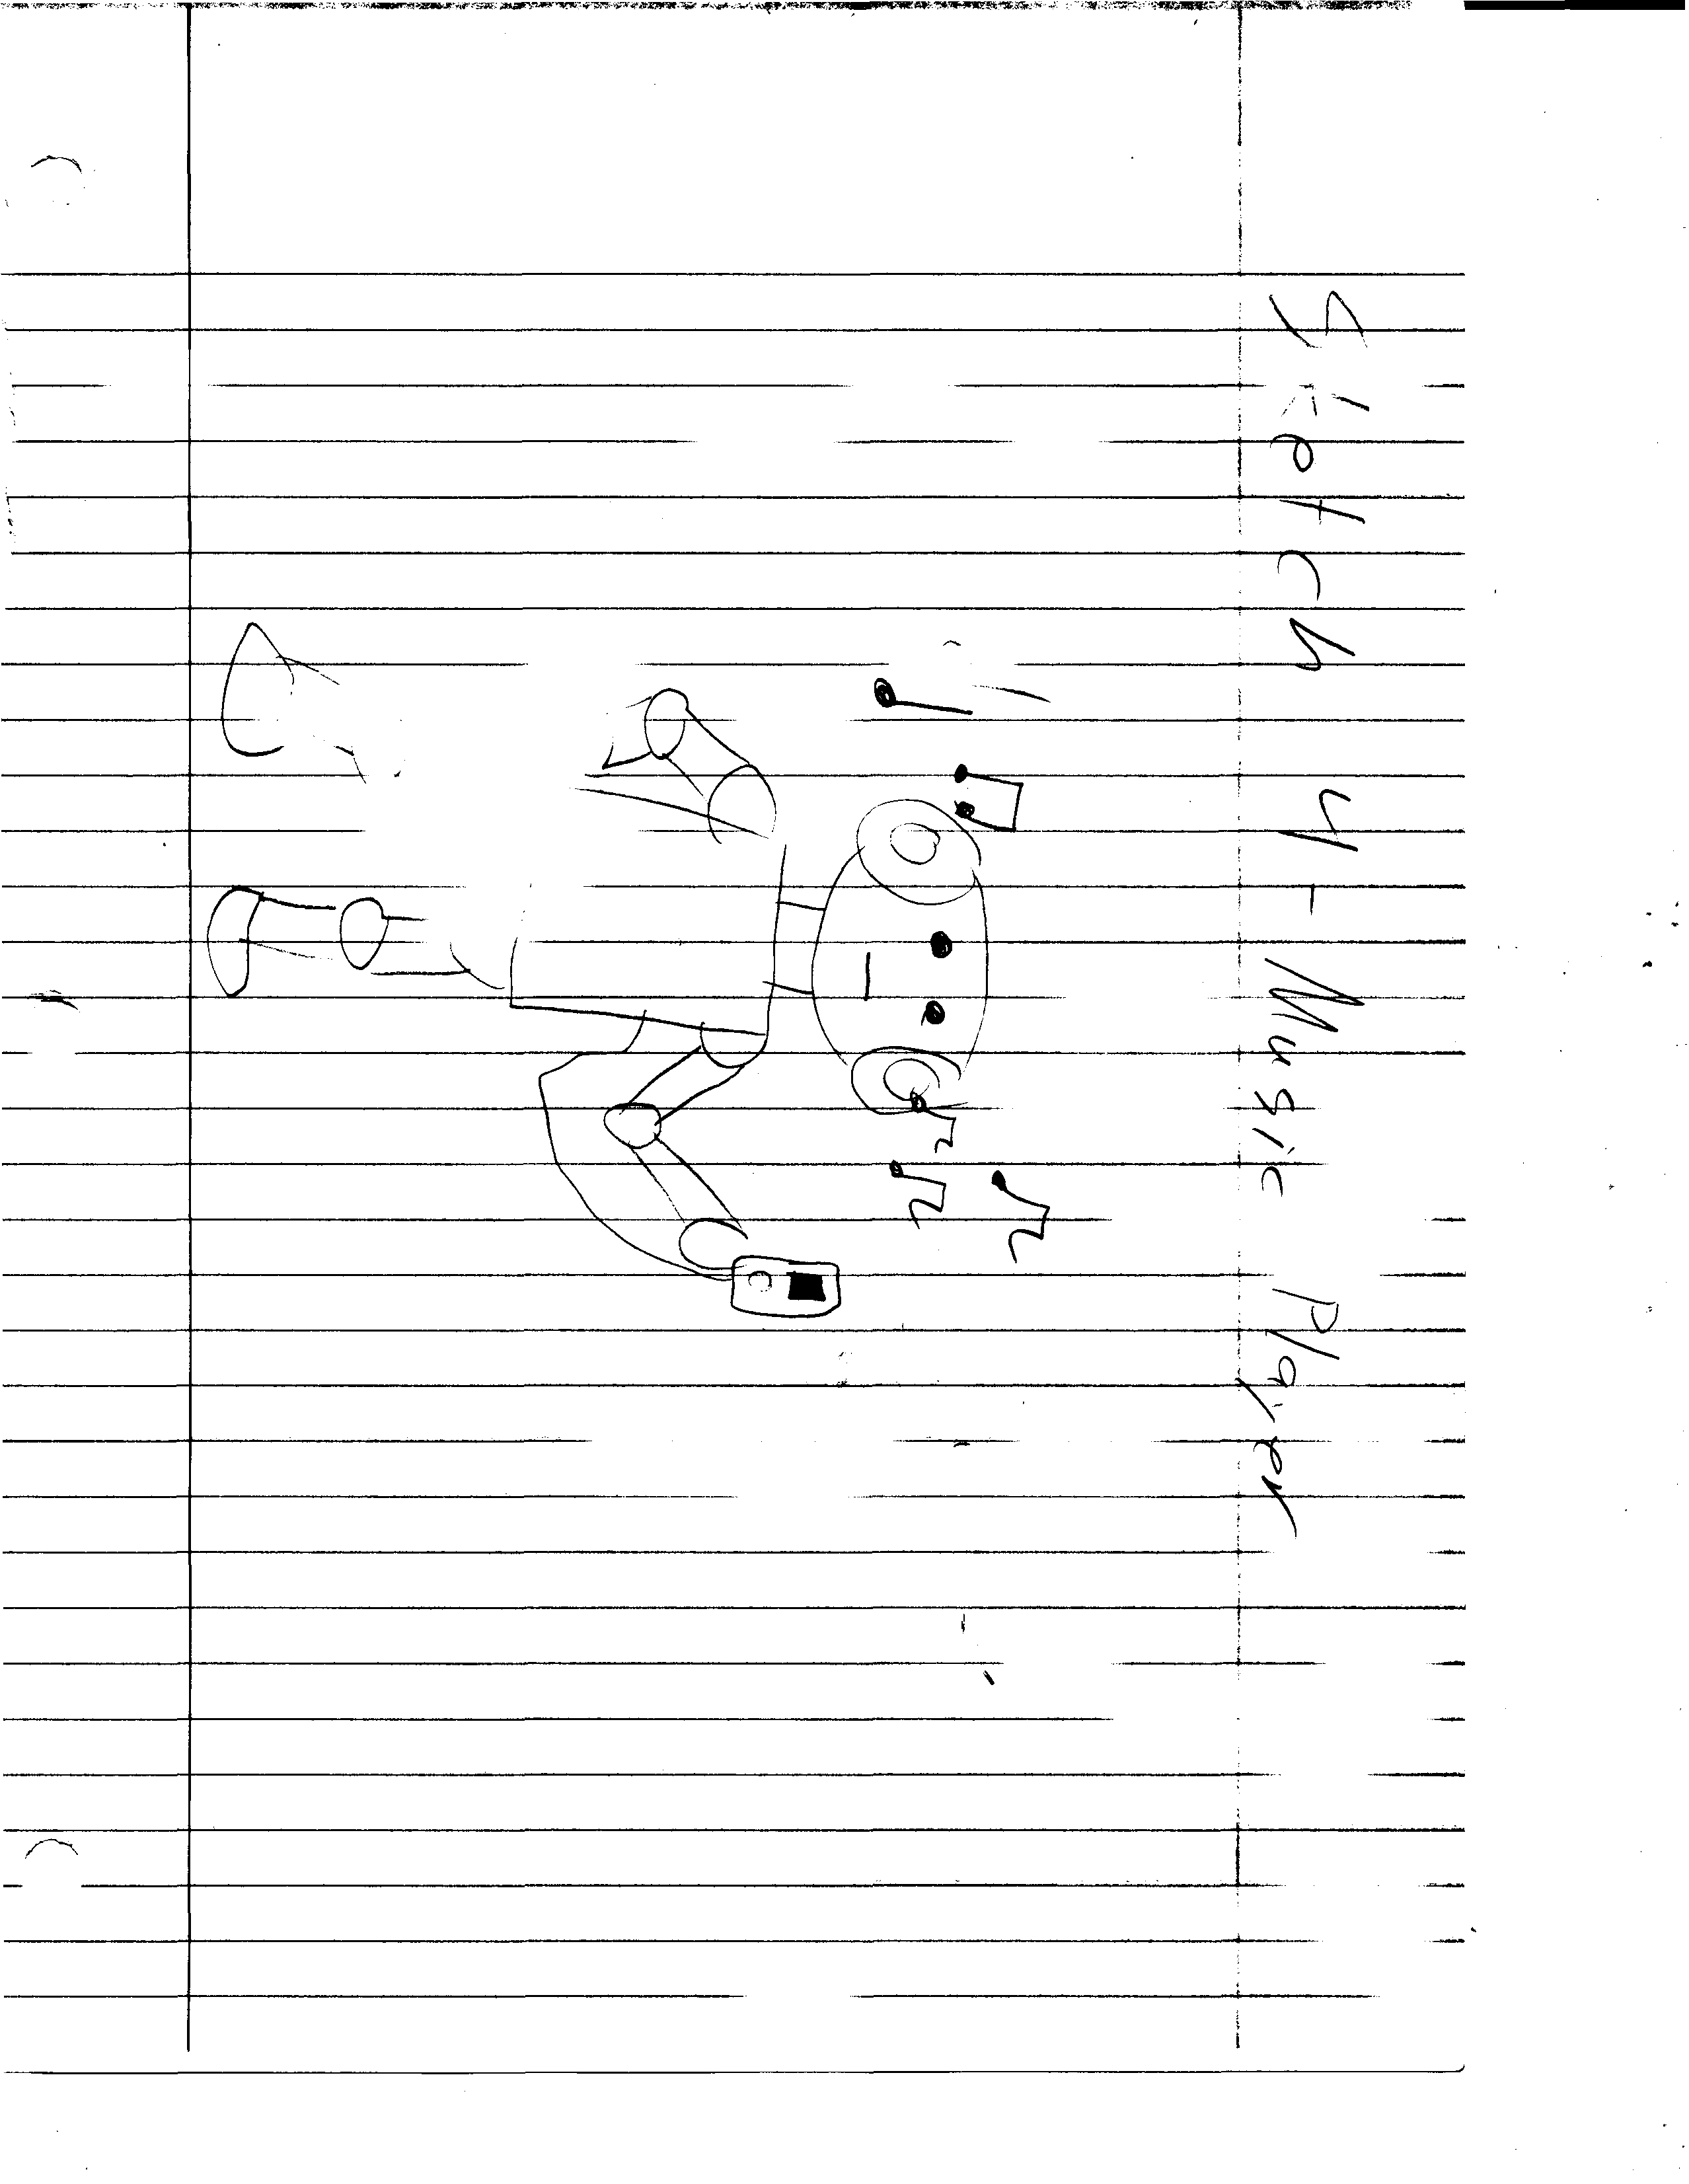 Sketch 4 - Music Player